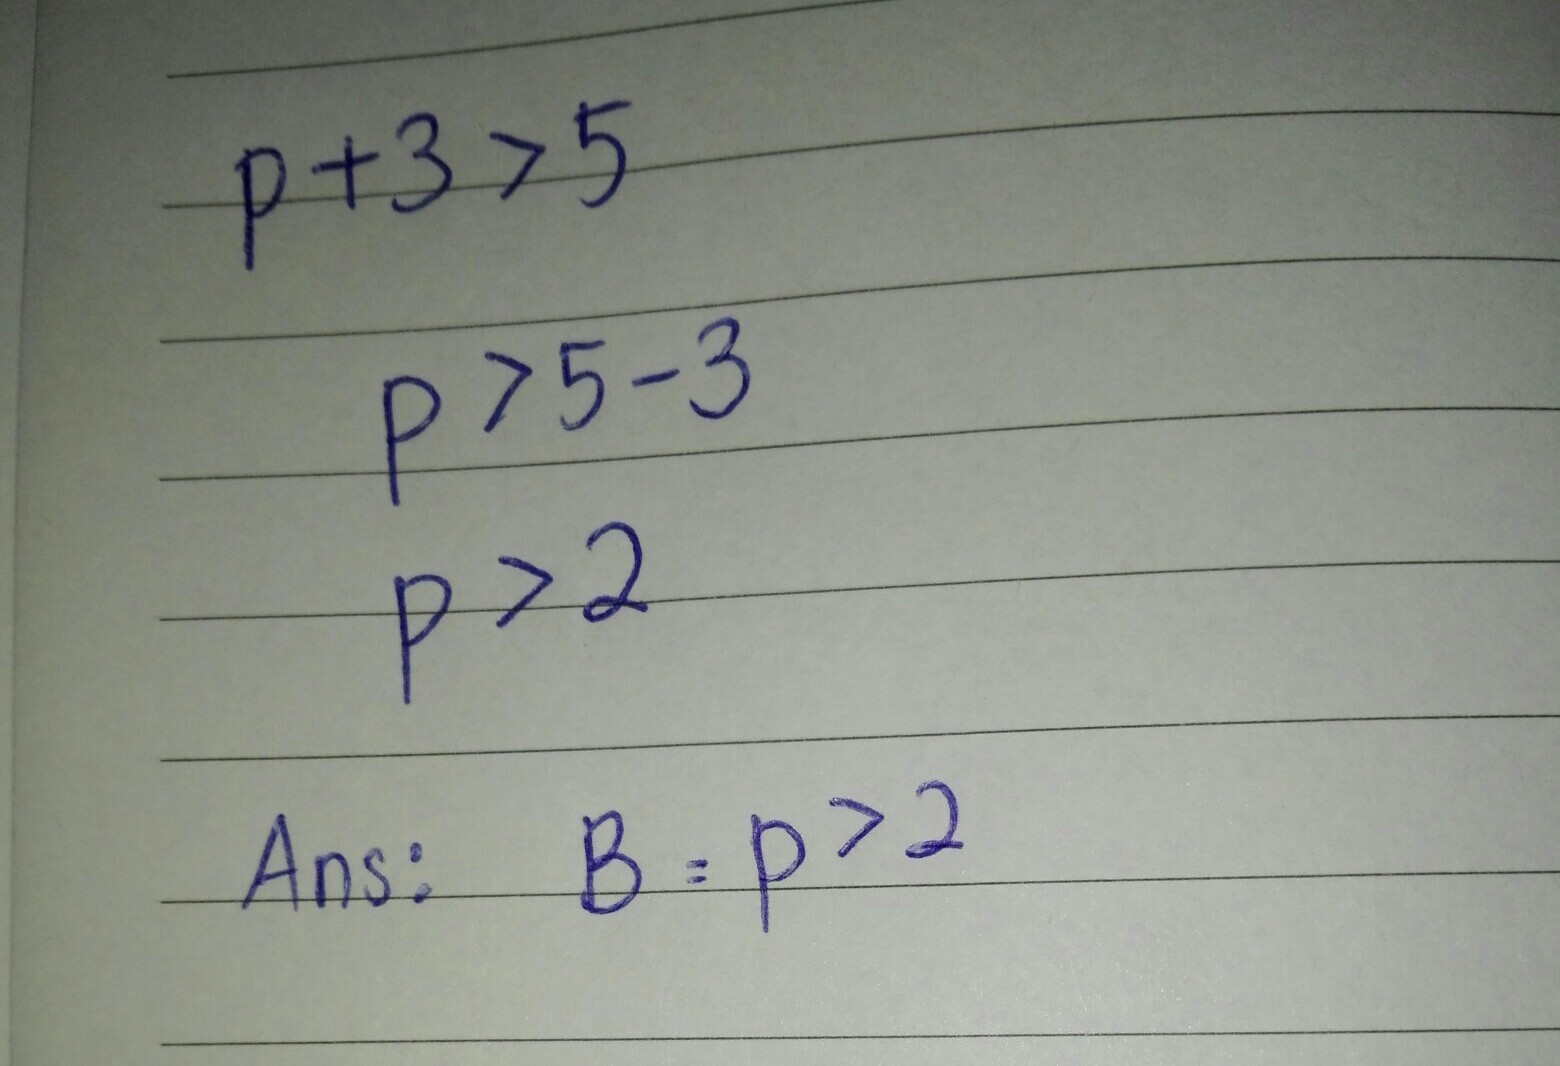 p+3>5
p>5-3
p>2
Ans: B = p>2